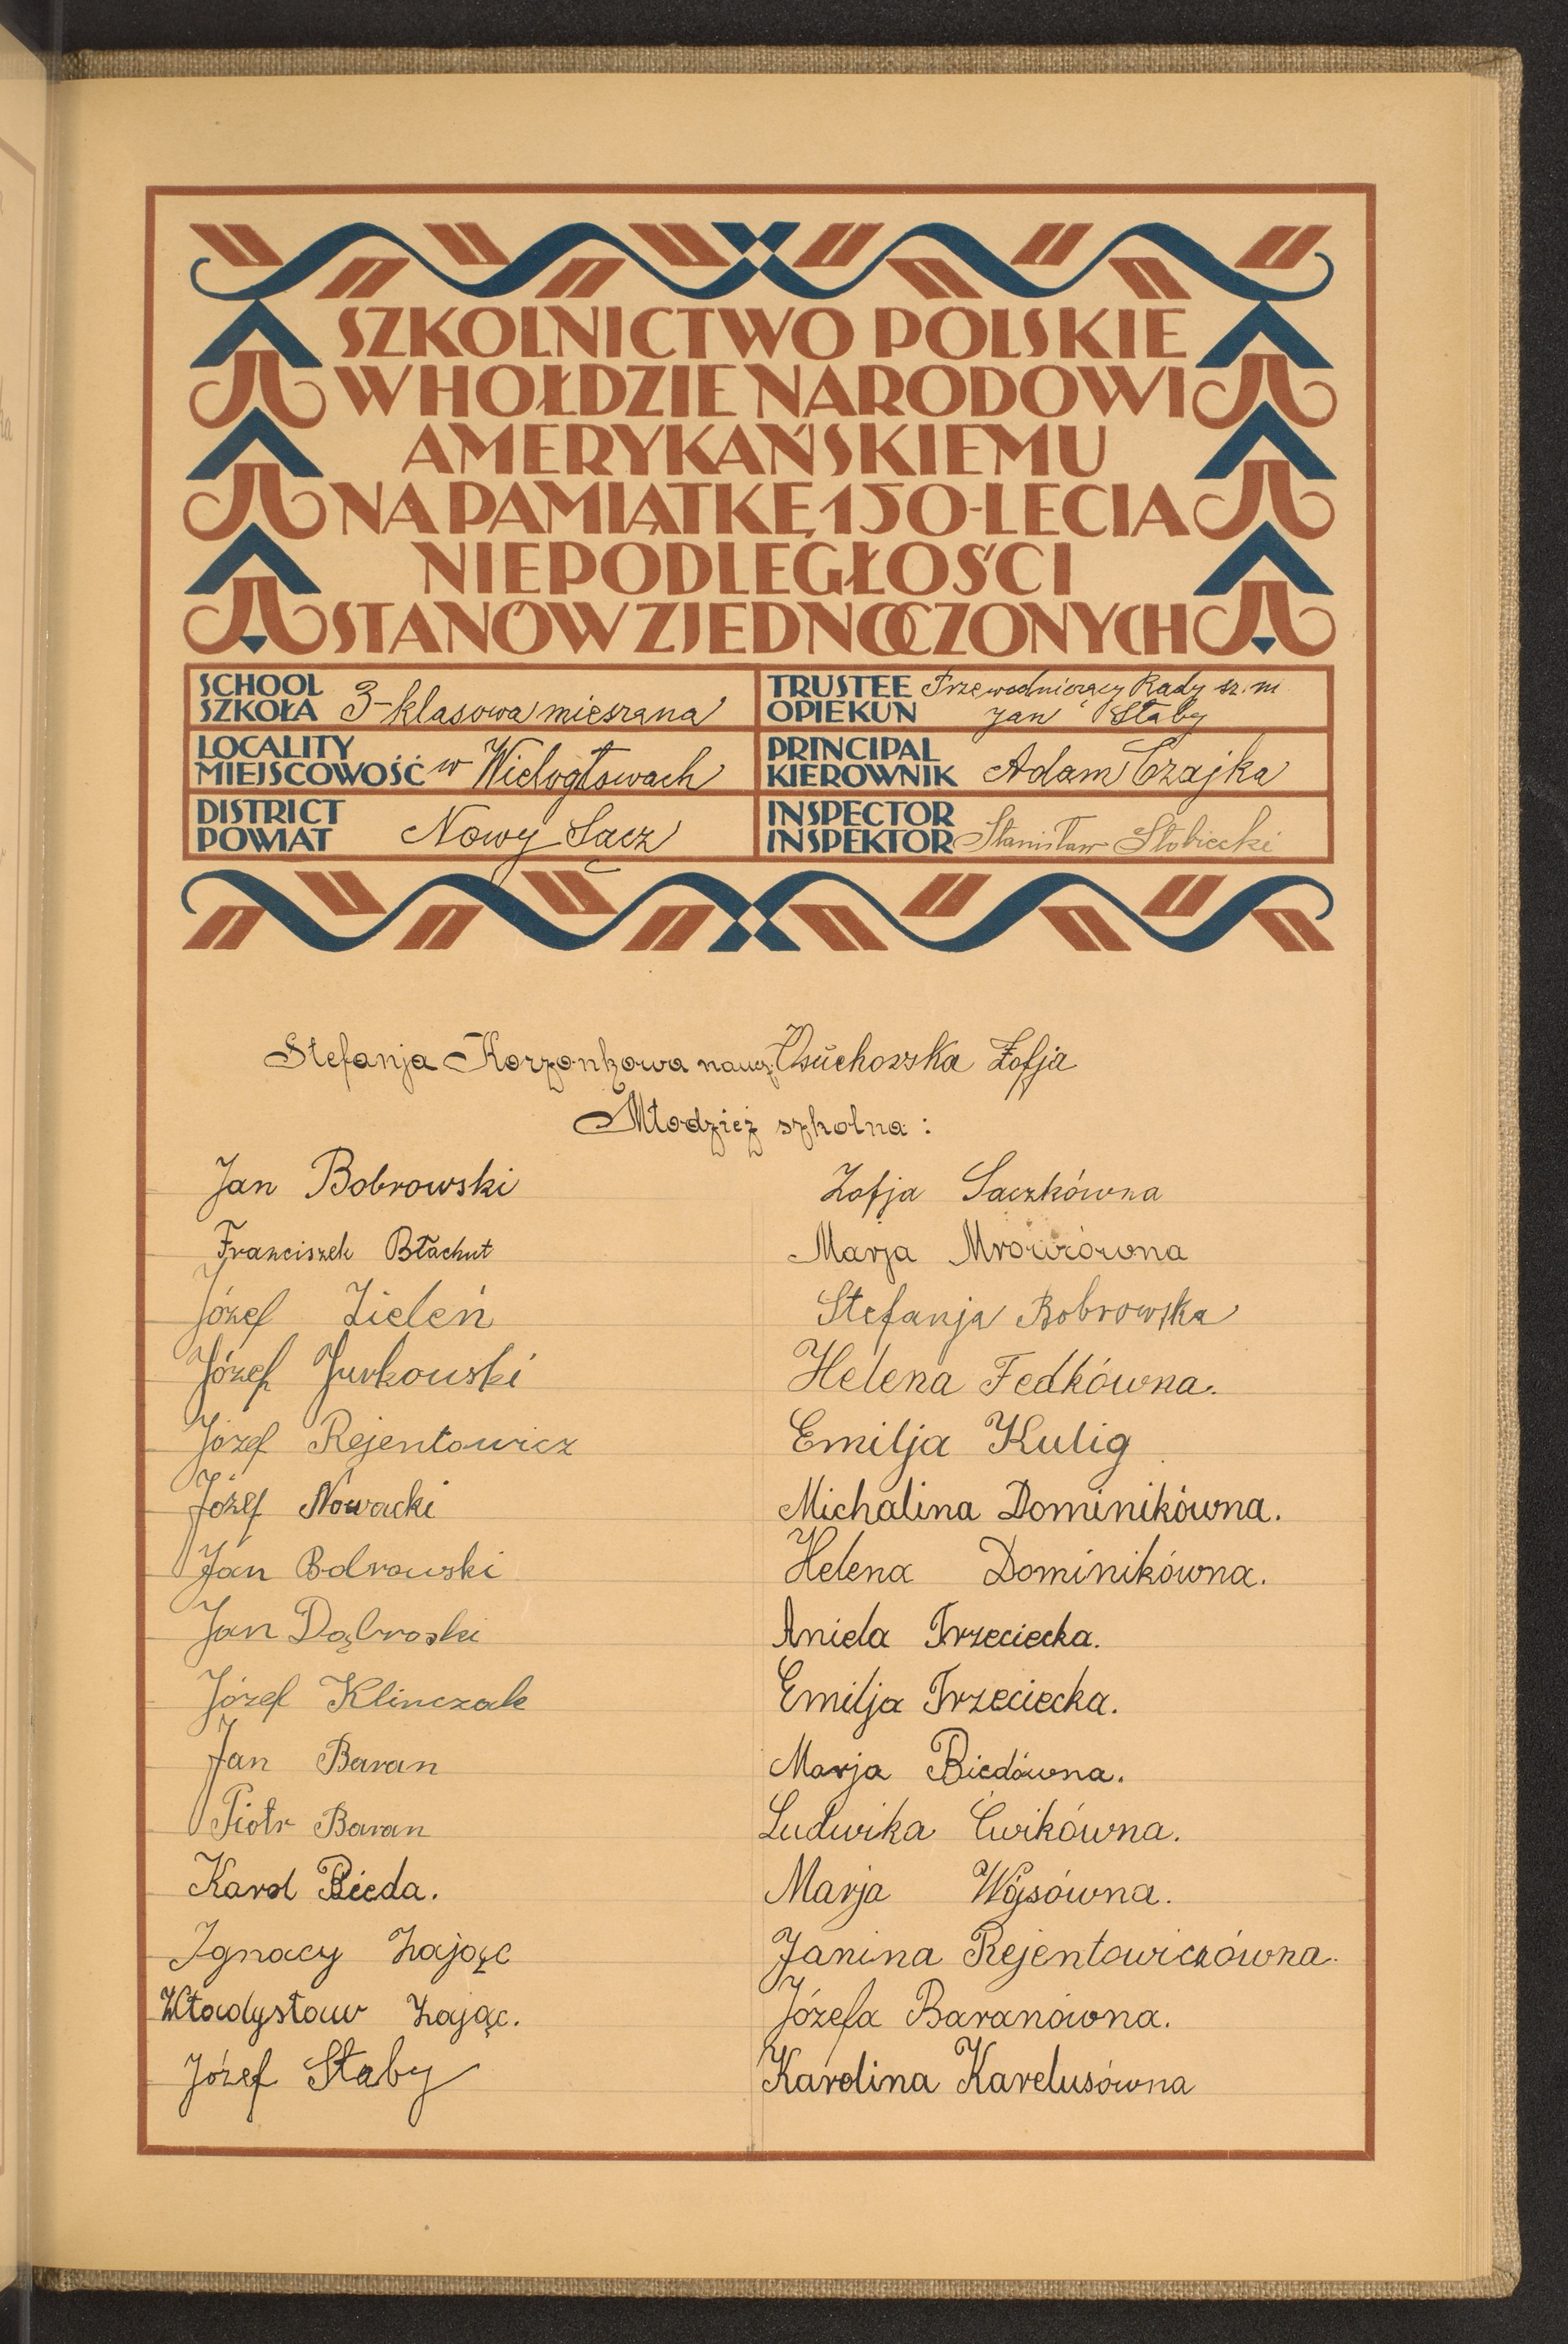 SZKOLNICTWO POLSKIE
W HOŁDZIE NARODOWI
AMERYKAŃSKIEMU
NA PAMIĄTKĘ 150-LECIA
NIEPODLEGŁOŚCI
STANÓW ZJEDNOCZONYCH
SCHOOL
SZKOŁA 3-klasowa mieszana
LOCALITY
MIEJSCOWOŚĆ w Wielogłowach
DISTRICT
POWIAT Nowy Sącz
TRUSTEE Przewodniczący Rady sz. m
OPIEKUN Jan Słaby
PRINCIPAL
KIEROWNIK Adam Czajka
INSPECTOR
INSPEKTOR Stanisław Słobiecki
Stefanja Korzonkowa naucz. Osuchowska Zofja
Młodzież szkolna :
Jan Bobrowski
Franciszek Błachut
Józef Zieleń
Józef Jurkowski
Józef Rejentowicz
Józef Nowacki
Jan Bobrowski
Jan Dąbroski
Józef Klimczak
Jan Baran
Piotr Baran
Karol Bieda.
Ignacy Zając
Władysław Zając.
Józef Słaby
Zofja Saczkówna
Marja Mrówcówna
Stefanja Bobrowska
Helena Fedkówna.
Emilja Kulig
Michalina Dominikówna.
Helena Dominikówna.
Aniela Trzeciecka.
Emilja Trzeciecka.
Marja Biedówna.
Ludwika Ćwikówna.
Marja Wójsówna.
Janina Rejentowiczówna.
Józefa Baranówna.
Karolina Karelusówna